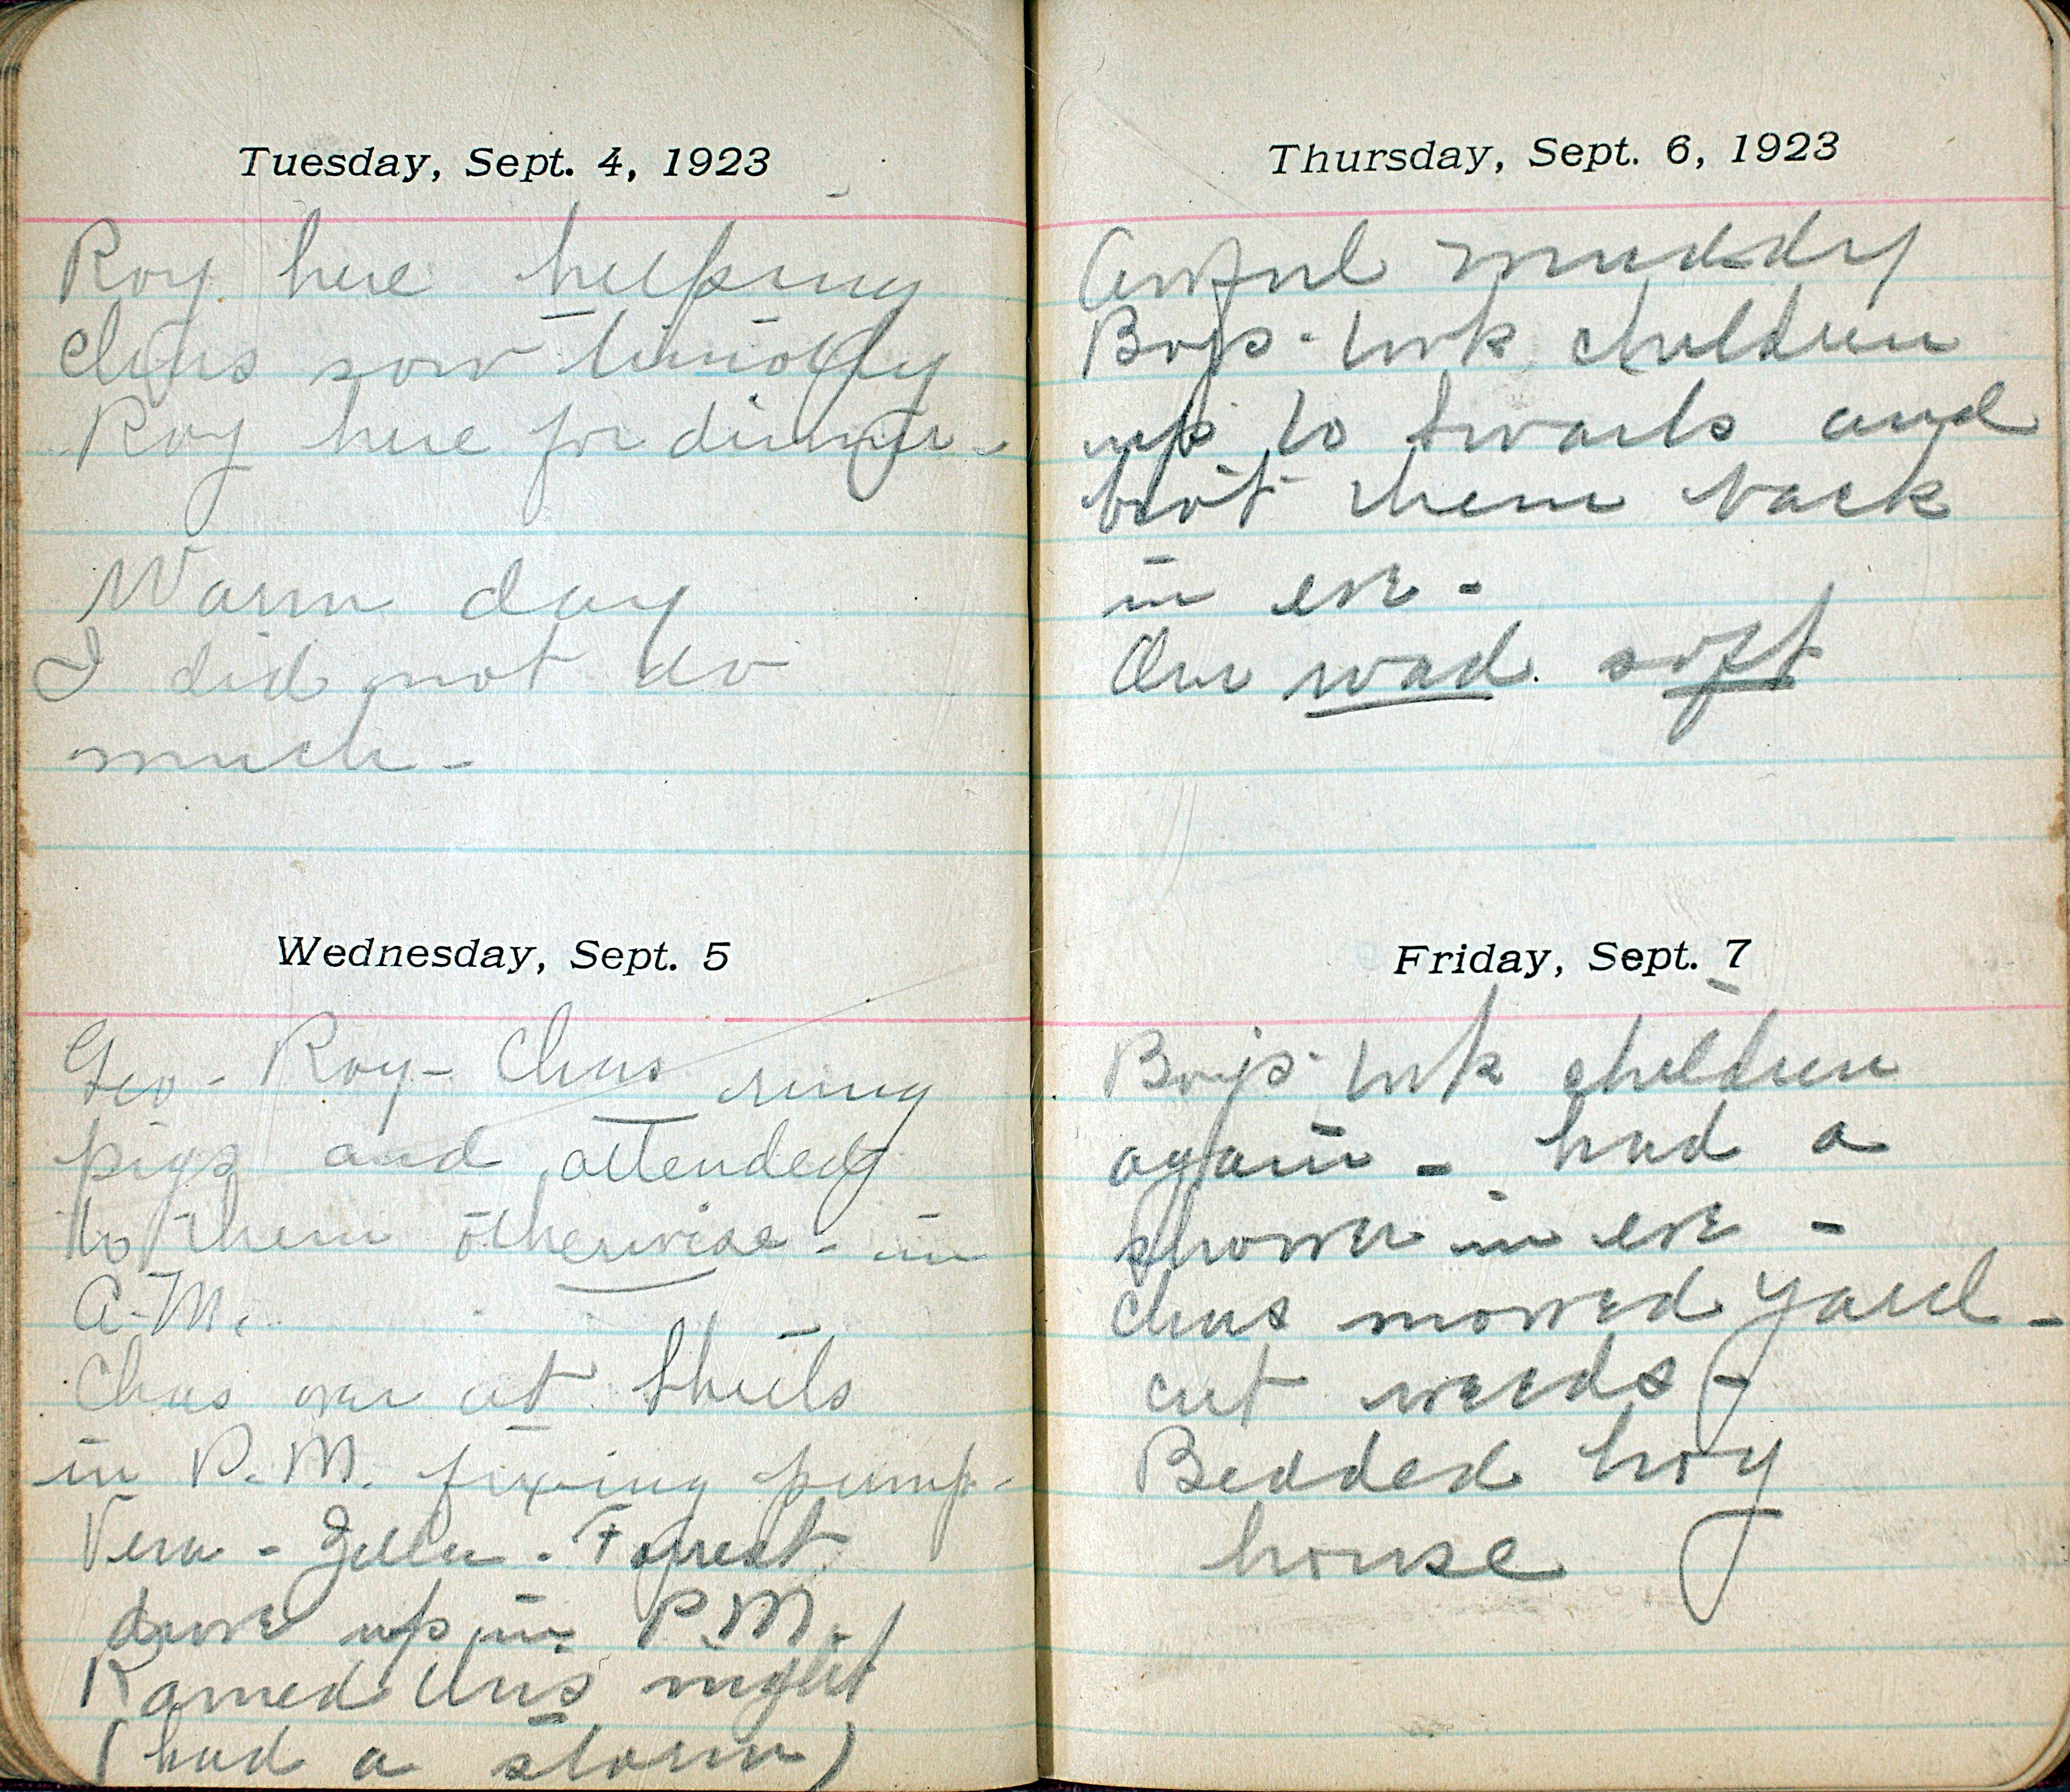 Tuesday, Sept. 4, 1923
Roy here helping
Chas sow timothy
Roy here for dinner -
Warm day
I did not do
much -
Wednesday, Sept. 5
Geo - Roy - Chas ring
pigs and attended
to them otherwise - in
A.M.
Chas over at
in P.M. fixing pump -
Vera - Zella - Forrest
drove up in P.M.
Rained this night
(had a storm)
Thursday, Sept. 6, 1923
Awful muddy
Boys took children
up to and
brot them back
in eve -
Our road soft
Friday, Sept. 7
Boys took children
again - had a
shower in eve -
Chas mowed yard -
cut weeds -
Bedded hog
house